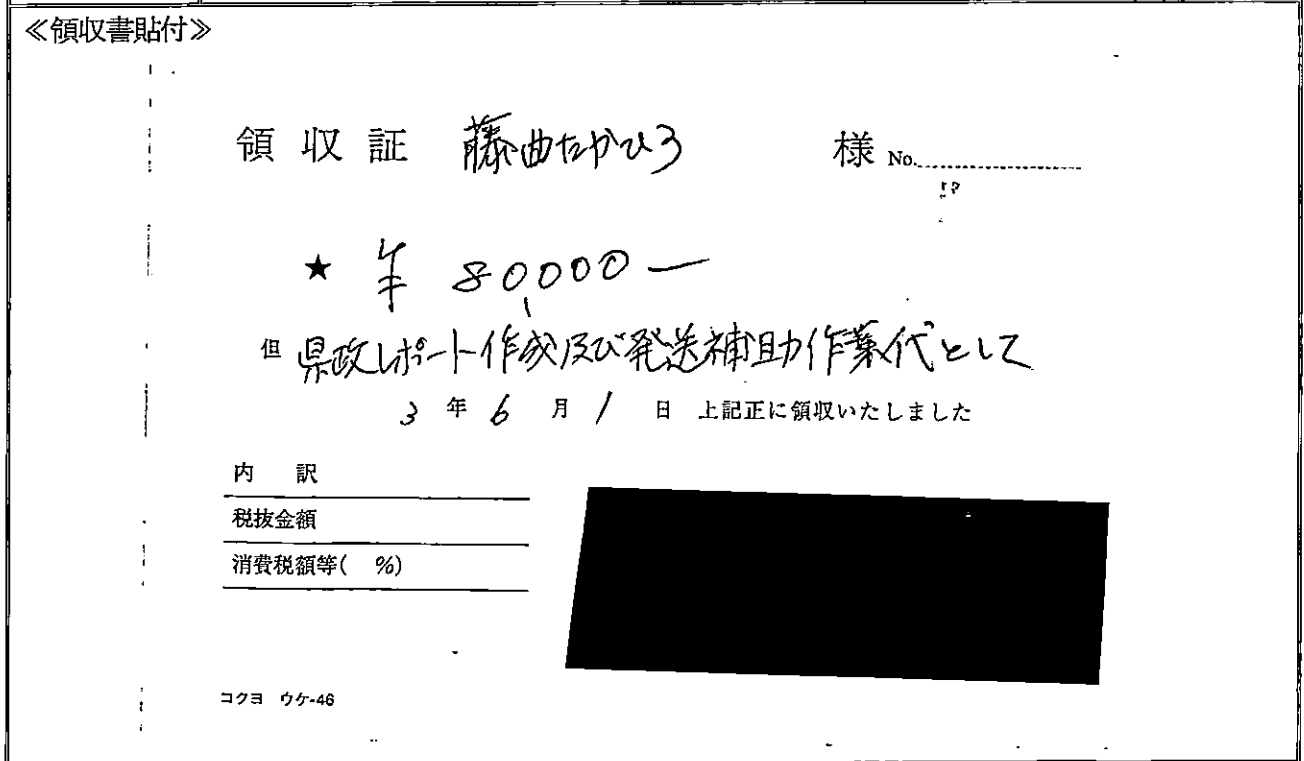 ≪領収書貼付≫
領収証 藤曲たかひろ 様 No.
★ ¥ 80000―
但 県政レポート作成及び発送補助作業代として
3 年 6 月 1 日 上記正に領収いたしました
内 訳
税抜金額
消費税額等( %)
コクヨ ウケ-46